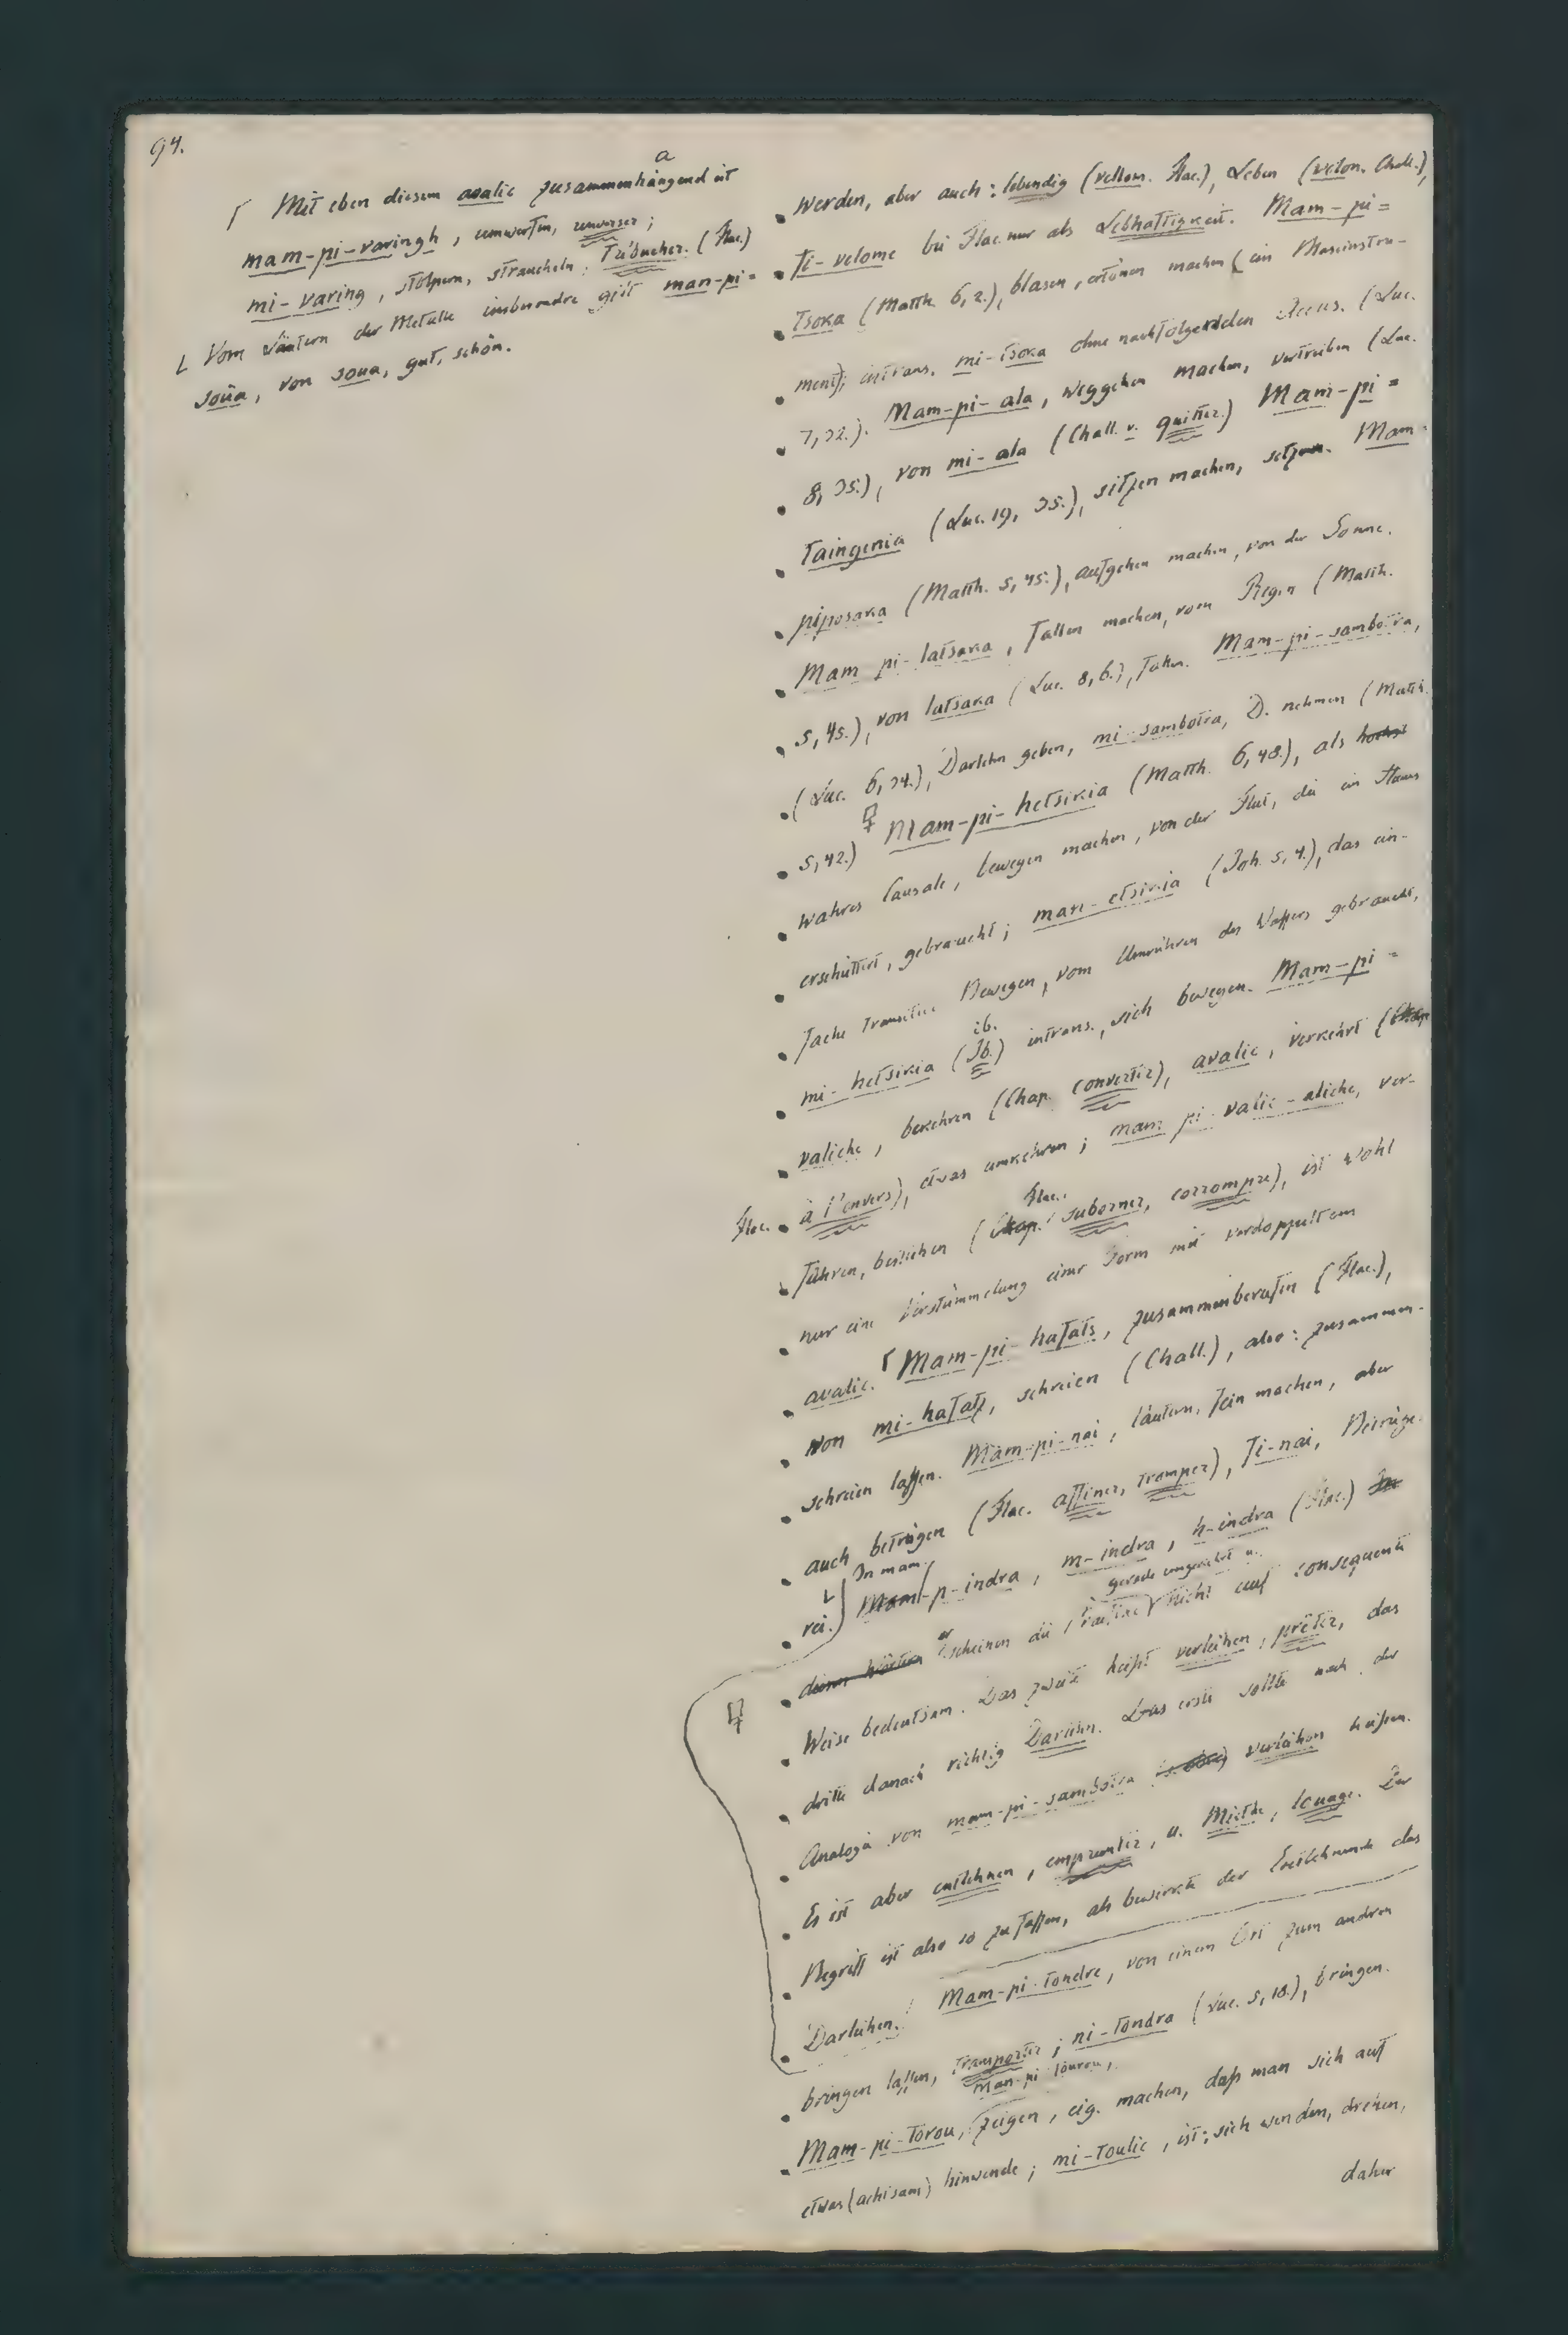 94.
a
⌈ Mit eben diesem avalic zusammenhängend ist
mam-pi-varingh, umwerfen, renverser;
mi-varing, stolpern, straucheln, trébucher. (Flac.)
⌊ Vom Läutern der Metalle insbesondre gilt man-pi=
soûa, von soua, gut, schön.
werden, aber auch: lebendig (vellom. Flac.), Leben (velon. Chall.),
fi-velome bei Flac. nur als Lebhaftigkeit. Mam-pi=
tsoka (Matth. 6, 2.), blasen, ertönen machen (ein Blaseinstru-
ment); intrans. mi-tsoka ohne nachfolgenden Accus. (Luc.
7, 32.). Mam-pi-ala, weggehen machen, vertreiben (Luc.
8, 35.), von mi-ala (Chall. v. quitter.) Mam-pi=
taingenia (Luc. 19, 35.), sitzen machen, setzen. Mam-
piposaka (Matth. 5, 45.), aufgehen machen, von der Sonne.
Mam pi-latsaka, fallen machen, vom Regen (Matth.
5, 45.), von latsaka (Luc. 8, 6.), fallen. Mam-pi-sambotra,
(Luc. 6, 34.), Darlehn geben, mi-sambotra, D. nehmen (Matth.
5, 42.) Mam-pi-hetsikia (Matth. 6, 48.), als
wahres Causale, bewegen machen, von der Flut, die ein Haus
erschüttert, gebraucht; man-etsikia (Joh. 5, 4.), das ein-
fache transitive Bewegen, vom Umrühren des Wassers gebraucht,
ib.
mi-hetsikia (Ib.) intrans., sich bewegen. Mam-pi=
valiche, bekehren (Chap. convertir), avalic, verkehrt (Chap.
Flac. à l'envers), etwas umkehren; mam-pi-valic-aliche, ver-
Flac.
führen, bestechen (Chap. suborner, corrompre), ist wohl
nur eine Verstümmelung einer Form mit verdoppeltem
avalic. ⌈ Mam-pi-hafats, zusammenberufen (Flac.),
von mi-hafatz, schreien (Chall.), also: zusammen-
schreien lassen. Mam-pi-nai, läutern, fein machen, aber
auch betrügen (Flac. affiner, tromper), fi-nai, Betrüge-
In mam
rei. ⌊ Mam-p-indra, m-indra, h-indra (Flac.) In
gerade umgekehrt u.
diesen Wörtern erscheinen die Praefixe nicht auf consequente
Weise bedeutsam. Das zweite heißt verleihen, prêter, das
dritte danach richtig Darlehn. Das erste sollte nach der
Analogie von mam-pi-sambotra verleihen heißen.
Es ist aber entlehnen, emprunter, u. Miethe, louage. Der
Begriff ist also so zu fassen, als bewirkte der Entlehnende das
Darleihen. Mam-pi-tondre, von einem Ort zum andren
bringen lassen, transporter; ni-tondra (Luc. 5, 18.), bringen.
Man-pi-tourou,
Mam-pi-torou, zeigen, eig. machen, daß man sich auf
etwas (achtsam) hinwende; mi-toulic, ist: sich wenden, drehen,
daher